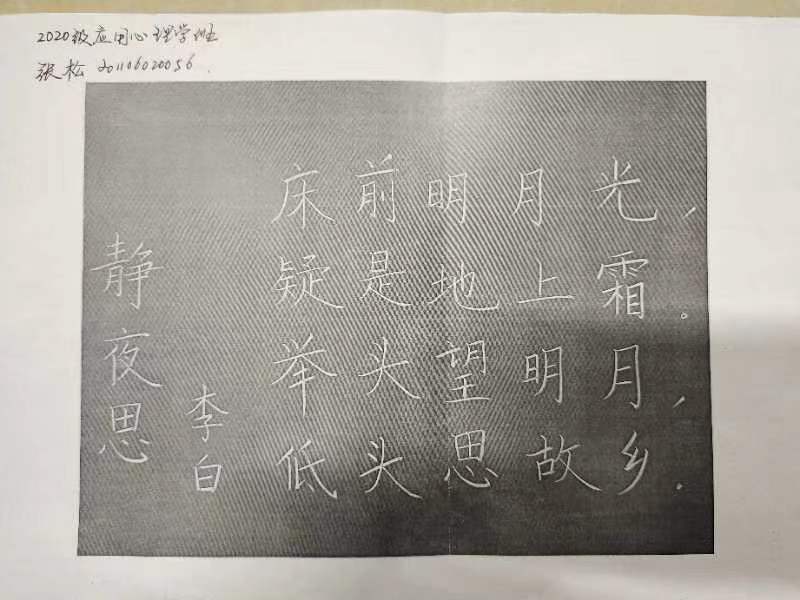 2020级应用心理学班
张松 201106020056.
静夜思
李白
床前明月光，
疑是地上霜。
举头望明月，
低头思故乡.